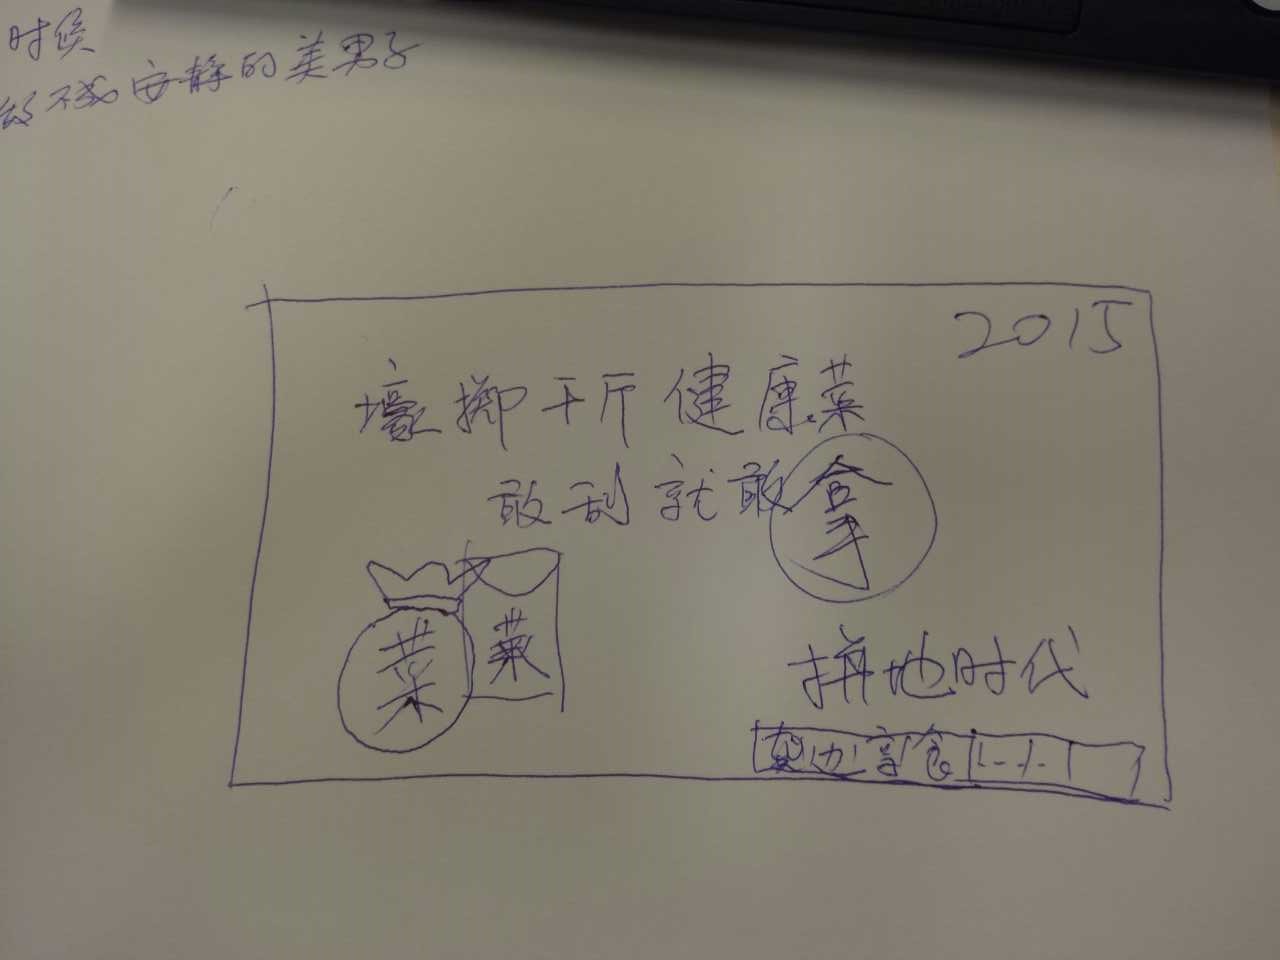 时候
做不成安静的美男子
2015
壕掷千斤健康菜
敢刮就敢拿
菜
菜
拼地时代
边享食